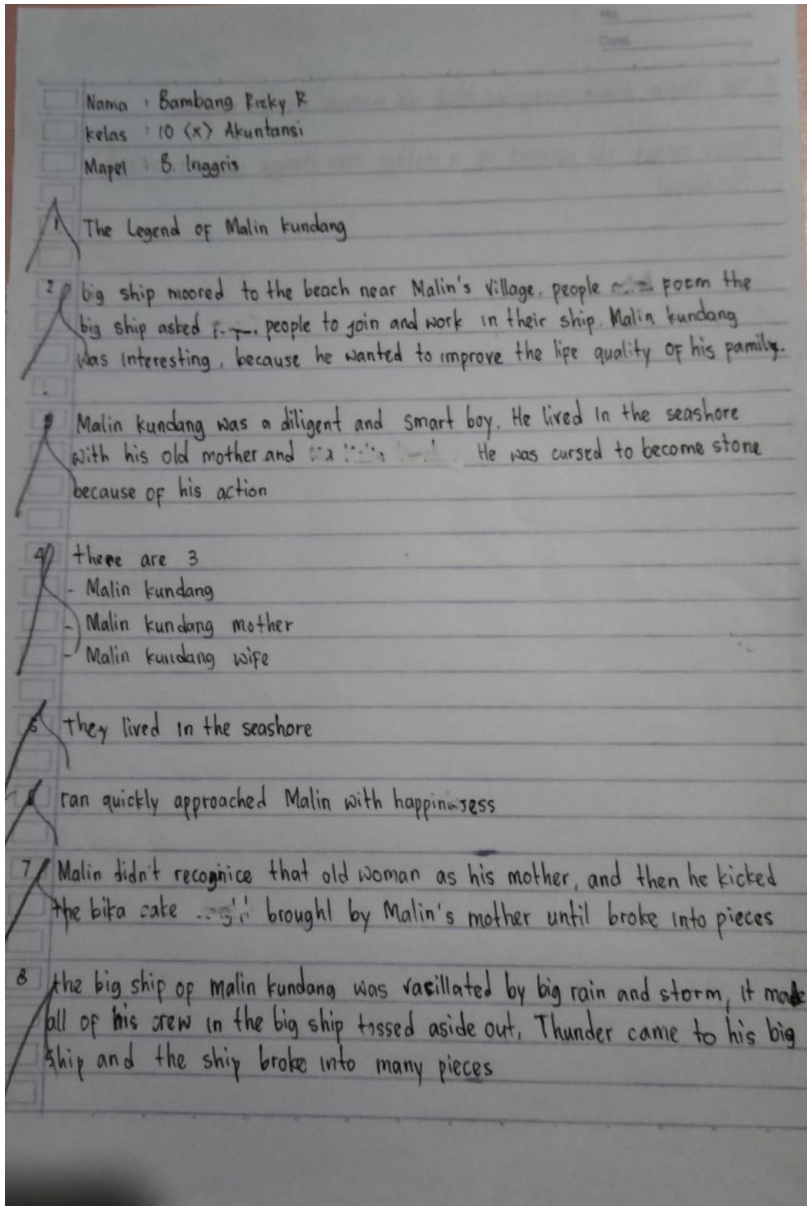 No.
Date
Nama : Bambang Rizky R
kelas : 10 <x> Akuntansi
Mapel : B. Inggris
1 The Legend of Malin kundang
2 big ship moored to the beach near Malin's village. people form the
big ship asked people to join and work in their ship. Malin kundang
was interesting, because he wanted to improve the life quality of his pamily.
Malin kundang was a diligent and smart boy. He lived in the seashore
with his old mother and He was cursed to become stone
because of his action
4 there are 3
- Malin kundang
- Malin kundang mother
- Malin kundang wife
5 They lived in the seashore
ran quickly approached Malin with
7 Malin didn't recognice that old woman as his mother, and then he kicked
the bika cake brought by Malin's mother until broke into pieces
8 the big ship op malin kundang was vasillated by big rain and storm, it made
all of his crew in the big ship tossed aside out. Thunder came to his big
ship and the ship broke into many pieces